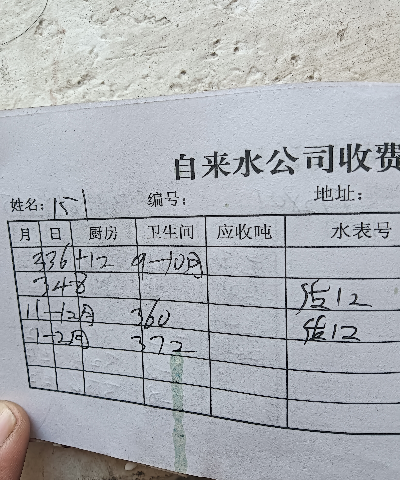 自来水公司收费
姓名: 151 编号: 地址:
月 日 厨房 卫生间 应收吨 水表号
336+12 9-10月
348
11-12月 360 估12
1-2月 372 估12